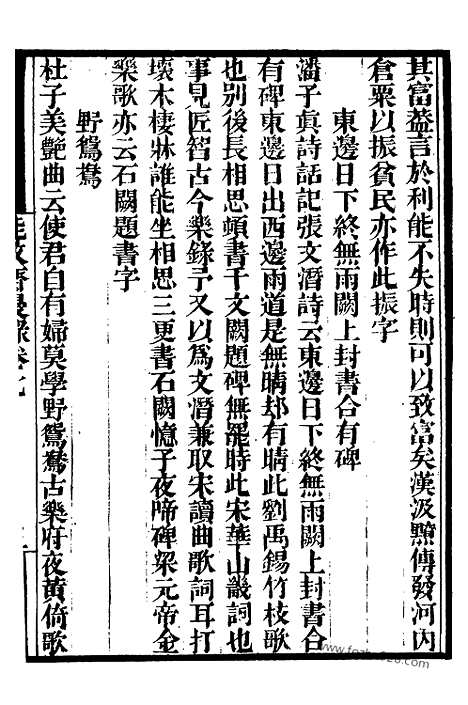 其富益言於利能不失時則可以致富矣漢汲黯傳發河內
倉粟以振貧民亦作此振字
東邊日下終無雨闕上封書合有碑
潘子眞詩話記張文潛詩云東邊日下終無雨闕上封書合
有碑東邊日出西邊雨道是無晴却有晴此劉禹錫竹枝歌
也別後長相思頓書千文闕題碑無罷時此宋華山畿詞也
事見匠智古今樂錄予又以爲文潛兼取宋讀曲歌詞耳打
壞木棲牀誰能坐相思三更書石闕憶子夜啼碑梁元帝金
樂歌亦云石闕題書字
野鴛鴦
杜子美艷曲云使君自有婦莫學野鴛鴦古樂府夜黃倚歌
能改齋漫錄卷七
www.fozhu920.com